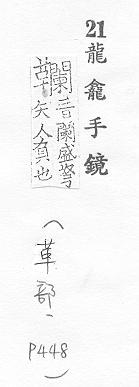 21 龍龕手鏡
音蘭盛弩
矢人負也
(革部, P448)